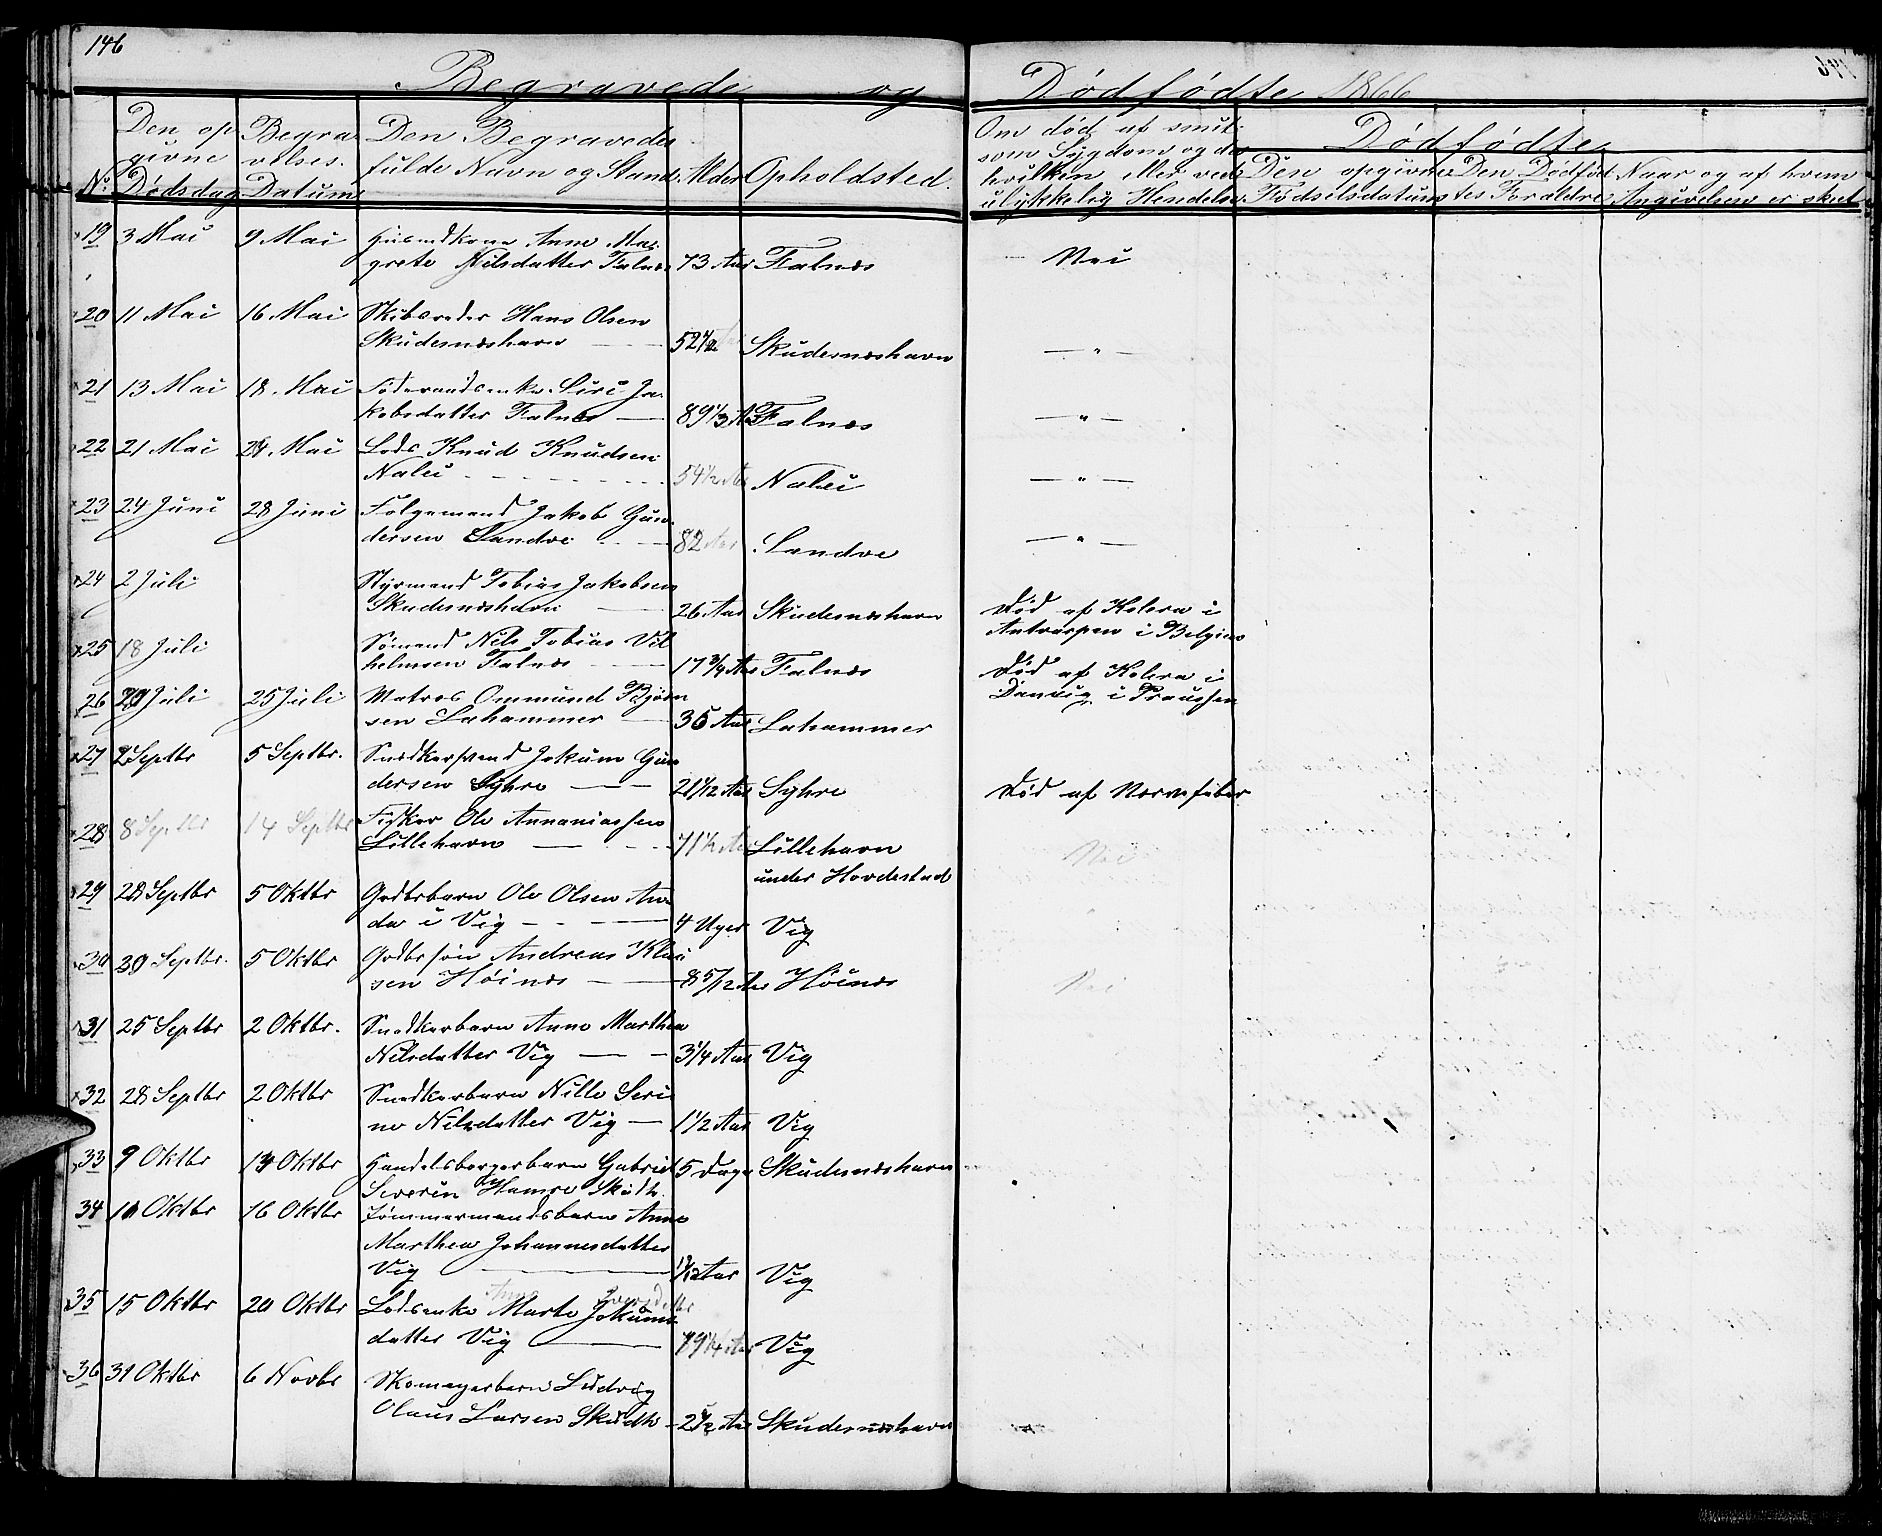 146
Begravede og Dødfødte 1866
No.
Den opgivne Dødsdag
Begravelses Datum
Den Begravedes fulde Navn og Stand
Alder
Opholdsted.
Om død af smitsom Sygdom og da hvilken eller ved ulykkelig Hendelse
Dødfødte
Den opgivne Fødselsdatum
Den Dødfødtes Forældre
Naar og af hvem Angivelsen er skeet
19 3 Mai 9 Mai Husmdkone Anne Mar-
grete Nilsdatter Falnæs 73 Aar Falnæs Nei
20 11 Mai 16 Mai Skibsreder Hans Olsen
Skudesnæshavn 52 1/2 Skudesnæshavn — " —
21 13 Mai 18 Mai Føderaadsenke Siri Ja-
kobsdatter Falnæs 89 1/3 Aar Falnæs — " —
22 21 Mai 28 Mai Lods Knud Knudsen
Nalei 54 1/2 Aar Nalei — " —
23 24 Juni 28 Juni Følgemand Jakob Gun-
dersen Sandve 82 Aar Sandve — " —
24 2 Juli Styrmand Tobias Jakobsen
Skudesnæshavn 26 Aar Skudesnæshavn Død af Kolera i
Antverpen i Belgien
25 18 Juli Sømand Nils Tobias Vil-
helmsen Falnæs 17 3/4 Aar Falnæs Død af Kolera i
Danzig i Preussen
26 20 Juli 25 Juli Matros Ommund Bjørn-
sen Lahammer 35 Aar Lahammer
27 2 Septbr 5 Septbr. Snedkersvend Jokum Gun-
dersen Syhre 21 1/12 Aar Syhre Død af Nervefeber
28 8 Septbr 14 Septbr Fisker Ole Annaniassen
Lillehavn 71 1/2 Aar Lillehavn Nei
under Hovdestad
29 28 Septbr 5 Oktbr Gdbrbarn Ole Olsen An-
da i Vig 4 Uger Vig
30 30 Septbr. 5 Oktbr Gdbrsøn Andreas Klau-
sen Høinæs 8 5/12 Aar Høinæs Nei
31 25 Septbr 2 Oktbr. Snedkerbarn Anne Marthea
Nilsdatter Vig 3 1/4 Aar Vig
32 28 Septbr 2 Oktbr Snedkerbarn Nille Seri-
ne Nilsdatter Vig 1 1/2 Aar Vig
33 9 Oktbr 14 Oktbr Handelsborgerbarn Gabriel 5 Dage Skudesnæshavn
Severin Hamre Skudh.
34 11 Oktbr 16 Oktbr Tømmermandsbarn Anne
Marthea Johannesdatter
Vig 1/12 Aar Vig
35 15 Oktbr 20 Oktbr Lodsenke Marte Jokums-
datter Vig 79 1/4 Aar Vig
36 31 Oktbr 6 Novbr Skomagerbarn Ludvig
Olaus Larsen Skudh 2 1/2 Aar Skudesnæshavn